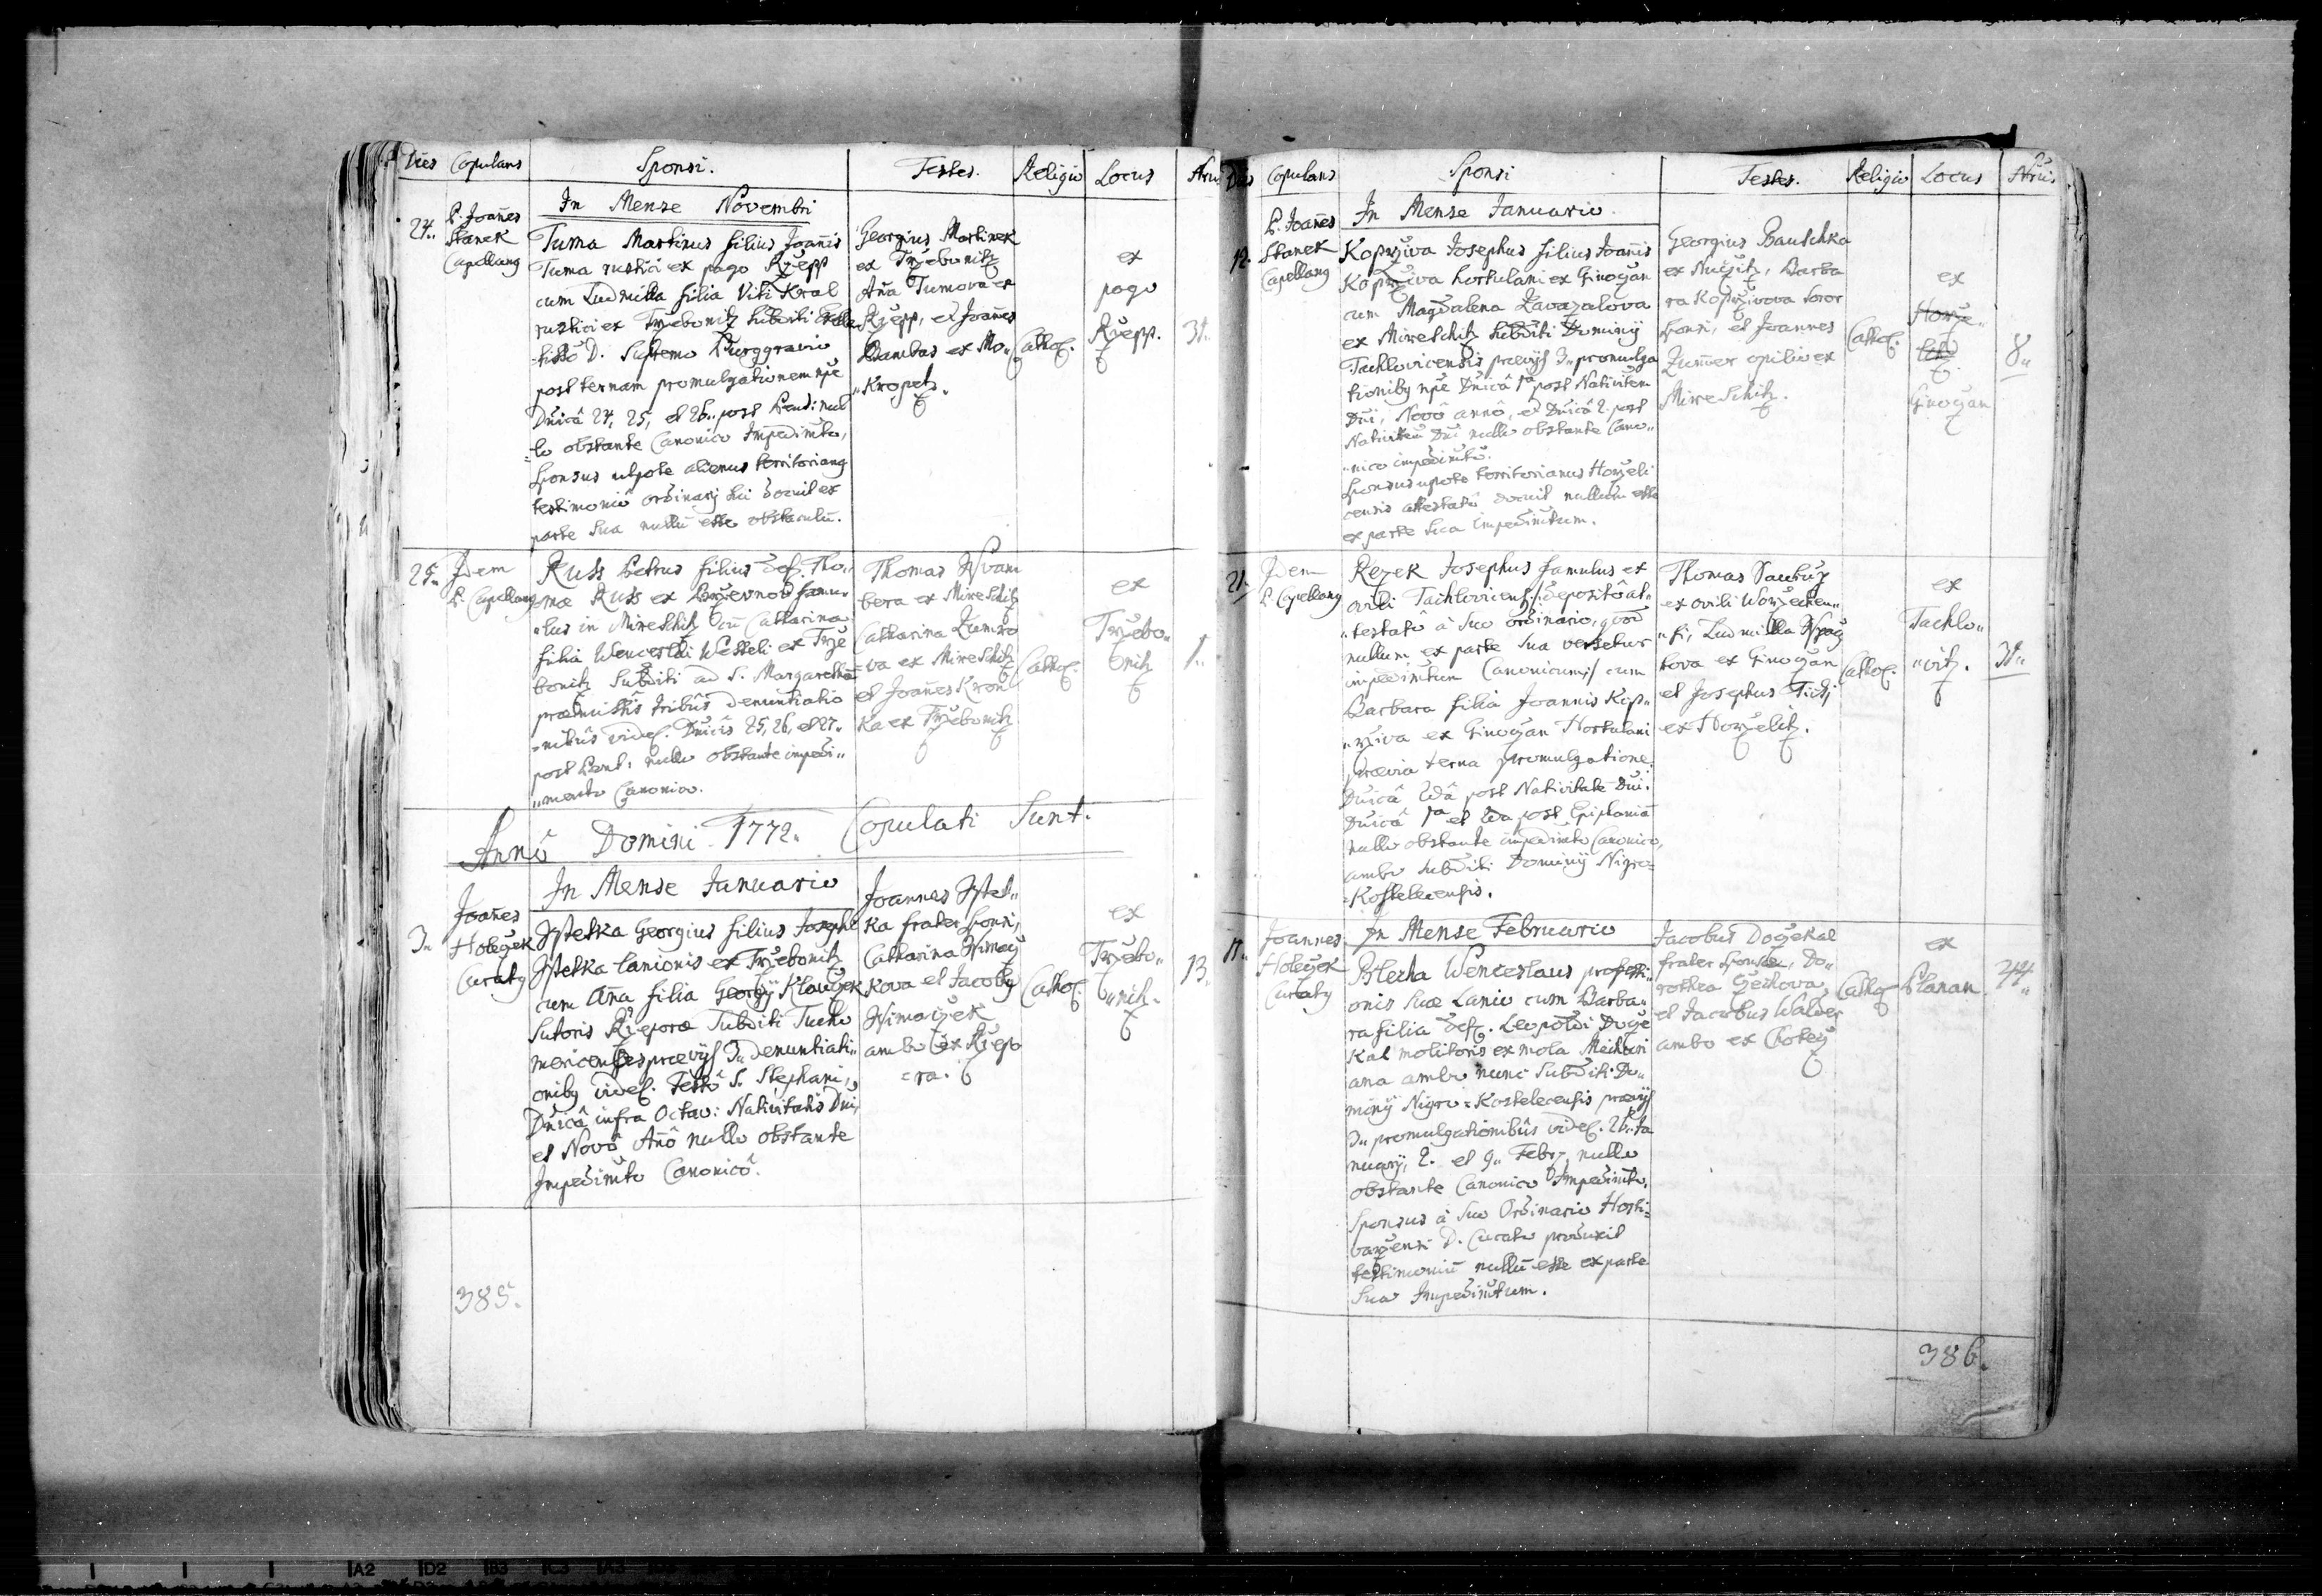 Dies Copulans Sponsi. Testes. Religio Locus
In Mense Novembri
24. P. Joañes
Stanek
Capellang
Tuma Martinus filius Joañis
Tuma rustici ex pago Rzepp
cum Ludmilla filia Viti Kral
rustici ex Trzebonitz Subditi
D. Supremo Burggravio
post ternam promulgationem npe
Dnicâ 24, 25, et 26. post Pent: nul
lo obstante Canonico Impedimto,
Sponsus utpote alienus territoriang
testimoniô ordinarij sui docuit ex
parte sua nullũ esse obstaculũ.
Georgius Martinek
ex Trzebonitz
Aña Tumova ex
Rzepp, et Joañes
Bambas ex Mo„
„Kropetz.
Cathol.
ex
pago
Rzepp.
31„
25. Idem
P. Capellang
Russ Petrus filius def. Tho„
mæ Russ ex Brzevnod famu„
„lus in Mireschitz cũ Catharina
filia Wenceslai Wesseli ex Trze
bonitz Subditi ad S. Margaretham
præmissis tribûs denuntiatio
„nibûs videl. Dnicis 25, 26, et 27„
post Pent: nullo obstante impedi„
„mento Canonico.
Thomas
bera ex Mireschitz
Catharina Zumro
va ex Mireschitz
et Joañes Kron
Ka ex Trzebonitz
Cathol.
ex
Trzebo„
nitz
1„
Annô Domini 1772. Copulati Sunt.
In Mense Januario
3„ Joañes
Holeczek
Curatg
Georgius filius Josephi
lanionis ex Trzebonitz
cum Aña filia Georgij Klauczek
Sutoris Rzeporæ Subditi Tucho
mericensis prævijs 3„ denuntiati„
onibg videl. Festô S. Stephani,
Dnicâ infra Octav: Nativitatis Dni,
et Novô Añô nullo obstante
Impedimto Canonicô.
Joannes
Ka frater sponsi,
Catharina
kova et Jacobg
ambo ex Rzepo
ra.
Cathol.
ex
Trzebo„
„nitz.
13„
385.
Dies Copulans Sponsi Testes. Religio Locus
In Mense Januario.
12. P. Joañes
Stanek
Capellang
Koprziva Josephus filius Joañis
Koprziva hortulani ex Ginoczan
cum Magdalena Zavazalova
ex Mireschitz Subditi Dominij
Tachlovicensis prævijs 3„ promulga
tionibg npe Dnicâ 1a post Nativitem
Dni, Novô annô, et Dnicâ 2. post
Nativitem Dni nullo obstante Cano„
„nico impedimtô.
Sponsus upote territorianus Horzeli
censis attestatô docuit nullum esse
ex parte sua impedimtum.
Georgius Bauschka
ex Nuczitz, Barba
ra Koprzivova Soror
sponsi, et Joannes
Zumer opilio ex
Mireschitz.
Cathol.
ex
Horze„
litz
Ginoczan
8„
21. Idem
P. Capellang
Rezek Josephus famulus ex
ovili Tachlovicensi /: depositô at„
„testato à suo ordinario, quod
nullum ex parte sua versetur
impedimtum Canonicum :/ cum
Barbara filia Joannis Kop„
„rziva ex Ginoczan Hortulani
prævia terna promulgatione
Dnicâ 2dâ post Nativitate Dni:
Dnicâ 1ma et 2da post Epiphaniã
nullo obstante impedimto Canonico,
ambo Subditi Dominij Nigro=
Kostelecensis.
Thomas
ex ovili Worzechen„
„si, Ludmilla
kova ex Ginoczan
et Josephus Tichj
ex Horzelitz.
Cathol.
ex
Tachlo„
„vitz.
31„
In Mense Februario
11. Joannes
Holeczek
Curatg
Wenceslaus professi
onis suæ Lanio cum Barba„
ra filia def. Leopoldi Docze
Kal molitoris ex mola Mechuri
ana ambo nunc Subditi Do„
minij Nigro=Kostelecensis prævijs
3„ promulgationibûs videl. 26. Ja
nuarij, 2. et 9„ Febr: nullo
obstante Canonico Impedimto.
Sponsus à suo Ordinario Hosti=
varzensi D. Curato produxit
testimoniũ nullũ esse ex parte
sua Impedimtum.
Jacobus Doczekal
frater sponsæ, Do„
rothea Czechova,
et Jacobus Walder
ambo ex Chotecz
Cathol.
ex
Blanan
44„
386.